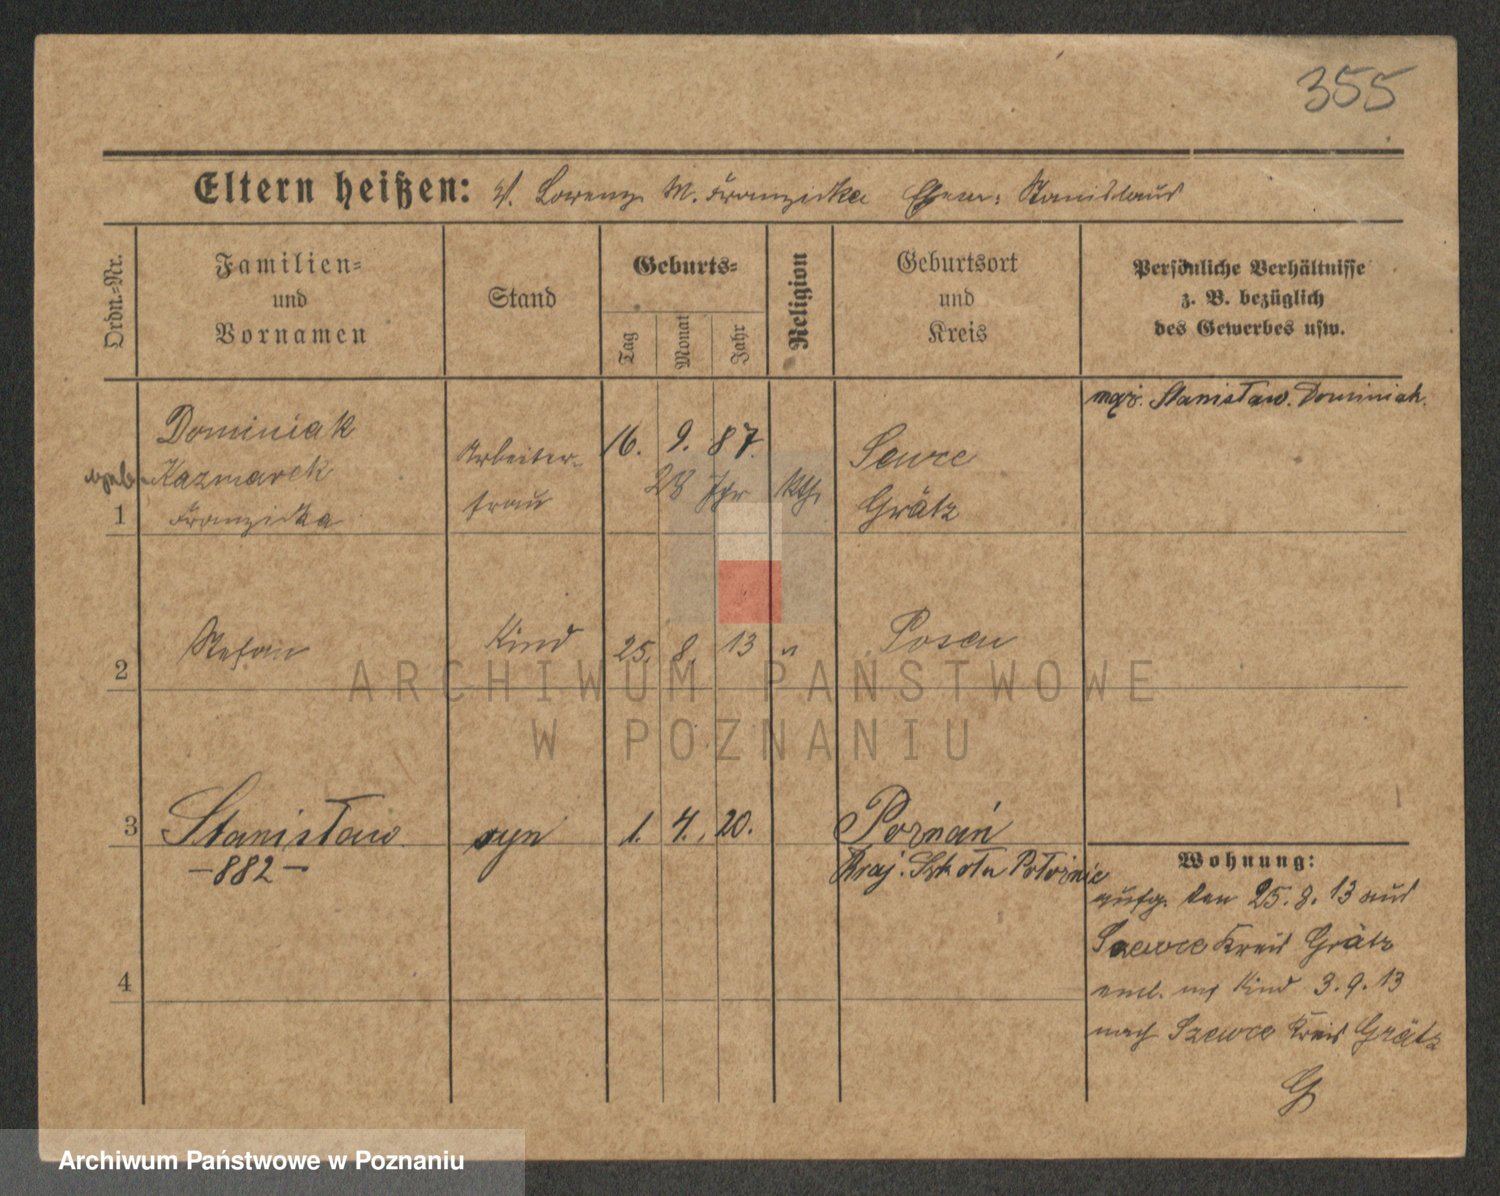 355
Eltern heißen: V. Lorenz M. Franziska Ehem: Stanislaus
Ordn.-Nr.
Familien-
und
Vornamen
Stand
Geburts-
Tag
Monat
Jahr
Religion
Geburtsort
und
Kreis
Persönliche Verhältnisse
z. B. bezüglich
des Gewerbes usw.
mąż. Stanisław. Dominiak.
Dominiak
geb. Kazmarek
1 Franziska
Arbeiter-
frau
16. 9. 87.
28 Jhr
kth.
Scewce
Grätz
2 Stefan Kind 25. 8. 13 " Posen
ARCHIWUM PAŃSTWOWE
W POZNANIU
3 Stanisław syn 1. 4. 20. Poznań
-882-
Kraj. Szkoła Położnic
4
Wohnung:
aufg. den 25. 8. 13 aus
Szewce Kreis Grätz
entl. m/ Kind 3. 9. 13
nach Szewce Kreis Grätz
G
Archiwum Państwowe w Poznaniu